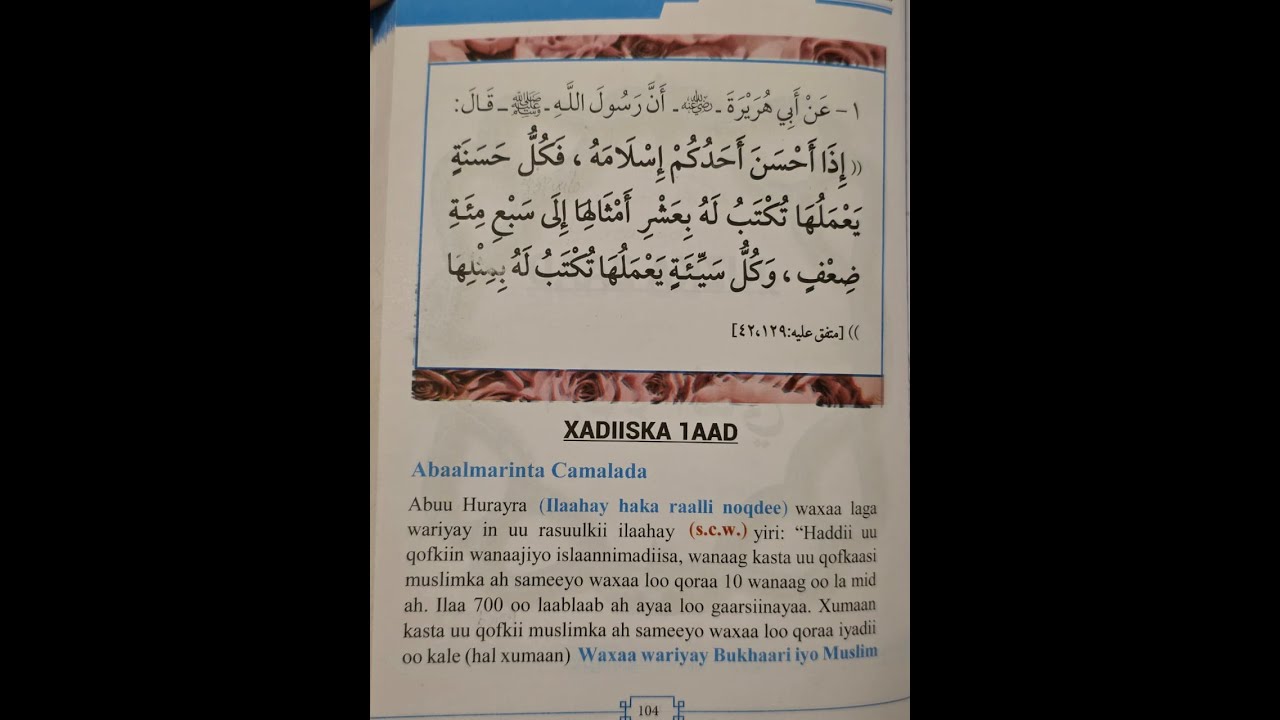 ١- عَنْ أَبِي هُرَيْرَةَ ـ رضي الله عنه ـ أَنَّ رَسُولَ اللَّهِ ـ ﷺ ـ قَالَ:
(( إِذَا أَحْسَنَ أَحَدُكُمْ إِسْلَامَهُ ، فَكُلُّ حَسَنَةٍ
يَعْمَلُهَا تُكْتَبُ لَهُ بِعَشْرِ أَمْثَالِهَا إِلَى سَبْعِ مِئَةِ
ضِعْفٍ ، وَكُلُّ سَيِّئَةٍ يَعْمَلُهَا تُكْتَبُ لَهُ بِمِثْلِهَا
)) [متفق عليه:٤٢،١٢٩]
XADIISKA 1AAD
Abaalmarinta Camalada
Abuu Hurayra (Ilaahay haka raalli noqdee) waxaa laga
wariyay in uu rasuulkii ilaahay (s.c.w.) yiri: “Haddii uu
qofkiin wanaajiyo islaannimadiisa, wanaag kasta uu qofkaasi
muslimka ah sameeyo waxaa loo qoraa 10 wanaag oo la mid
ah. Ilaa 700 oo laablaab ah ayaa loo gaarsiinayaa. Xumaan
kasta uu qofkii muslimka ah sameeyo waxaa loo qoraa iyadii
oo kale (hal xumaan) Waxaa wariyay Bukhaari iyo Muslim
104